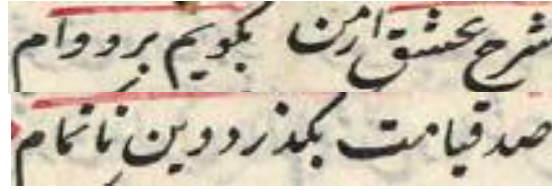 شرح عشق ار من بگویم بر دوام
صد قیامت بگذرد وین ناتمام